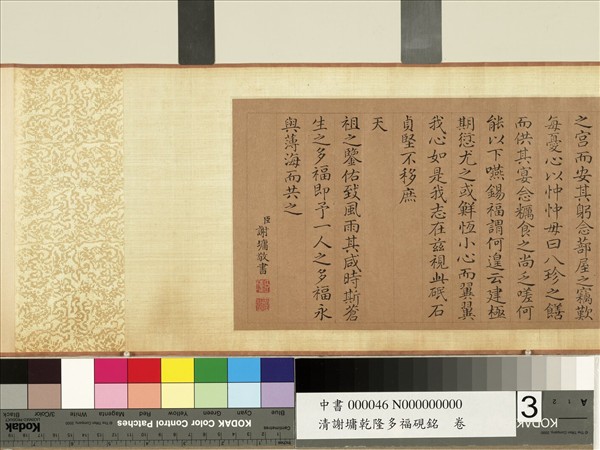 之宮而安其躬念蔀屋之竊歎
每憂心以忡忡毋曰八珍之饍
而供其宴念糲食之尚乏嗟何
能以下嚥錫福謂何遑云建極
期愆尤之或鮮恆小心而翼翼
我心如是我志在茲視此砥石
貞堅不移庶
天
祖之鑒佑致風雨其咸時斯蒼
生之多福即予一人之多福永
與薄海而共之
臣謝墉敬書
Blue
Cyan
Green
Yellow
Red
Magenta
White
3/Color
Black
Kodak
KODAK Color Control Patches
中書 000046 N000000000
清謝墉乾隆多福硯銘 卷
3
A 1 2
KODAK